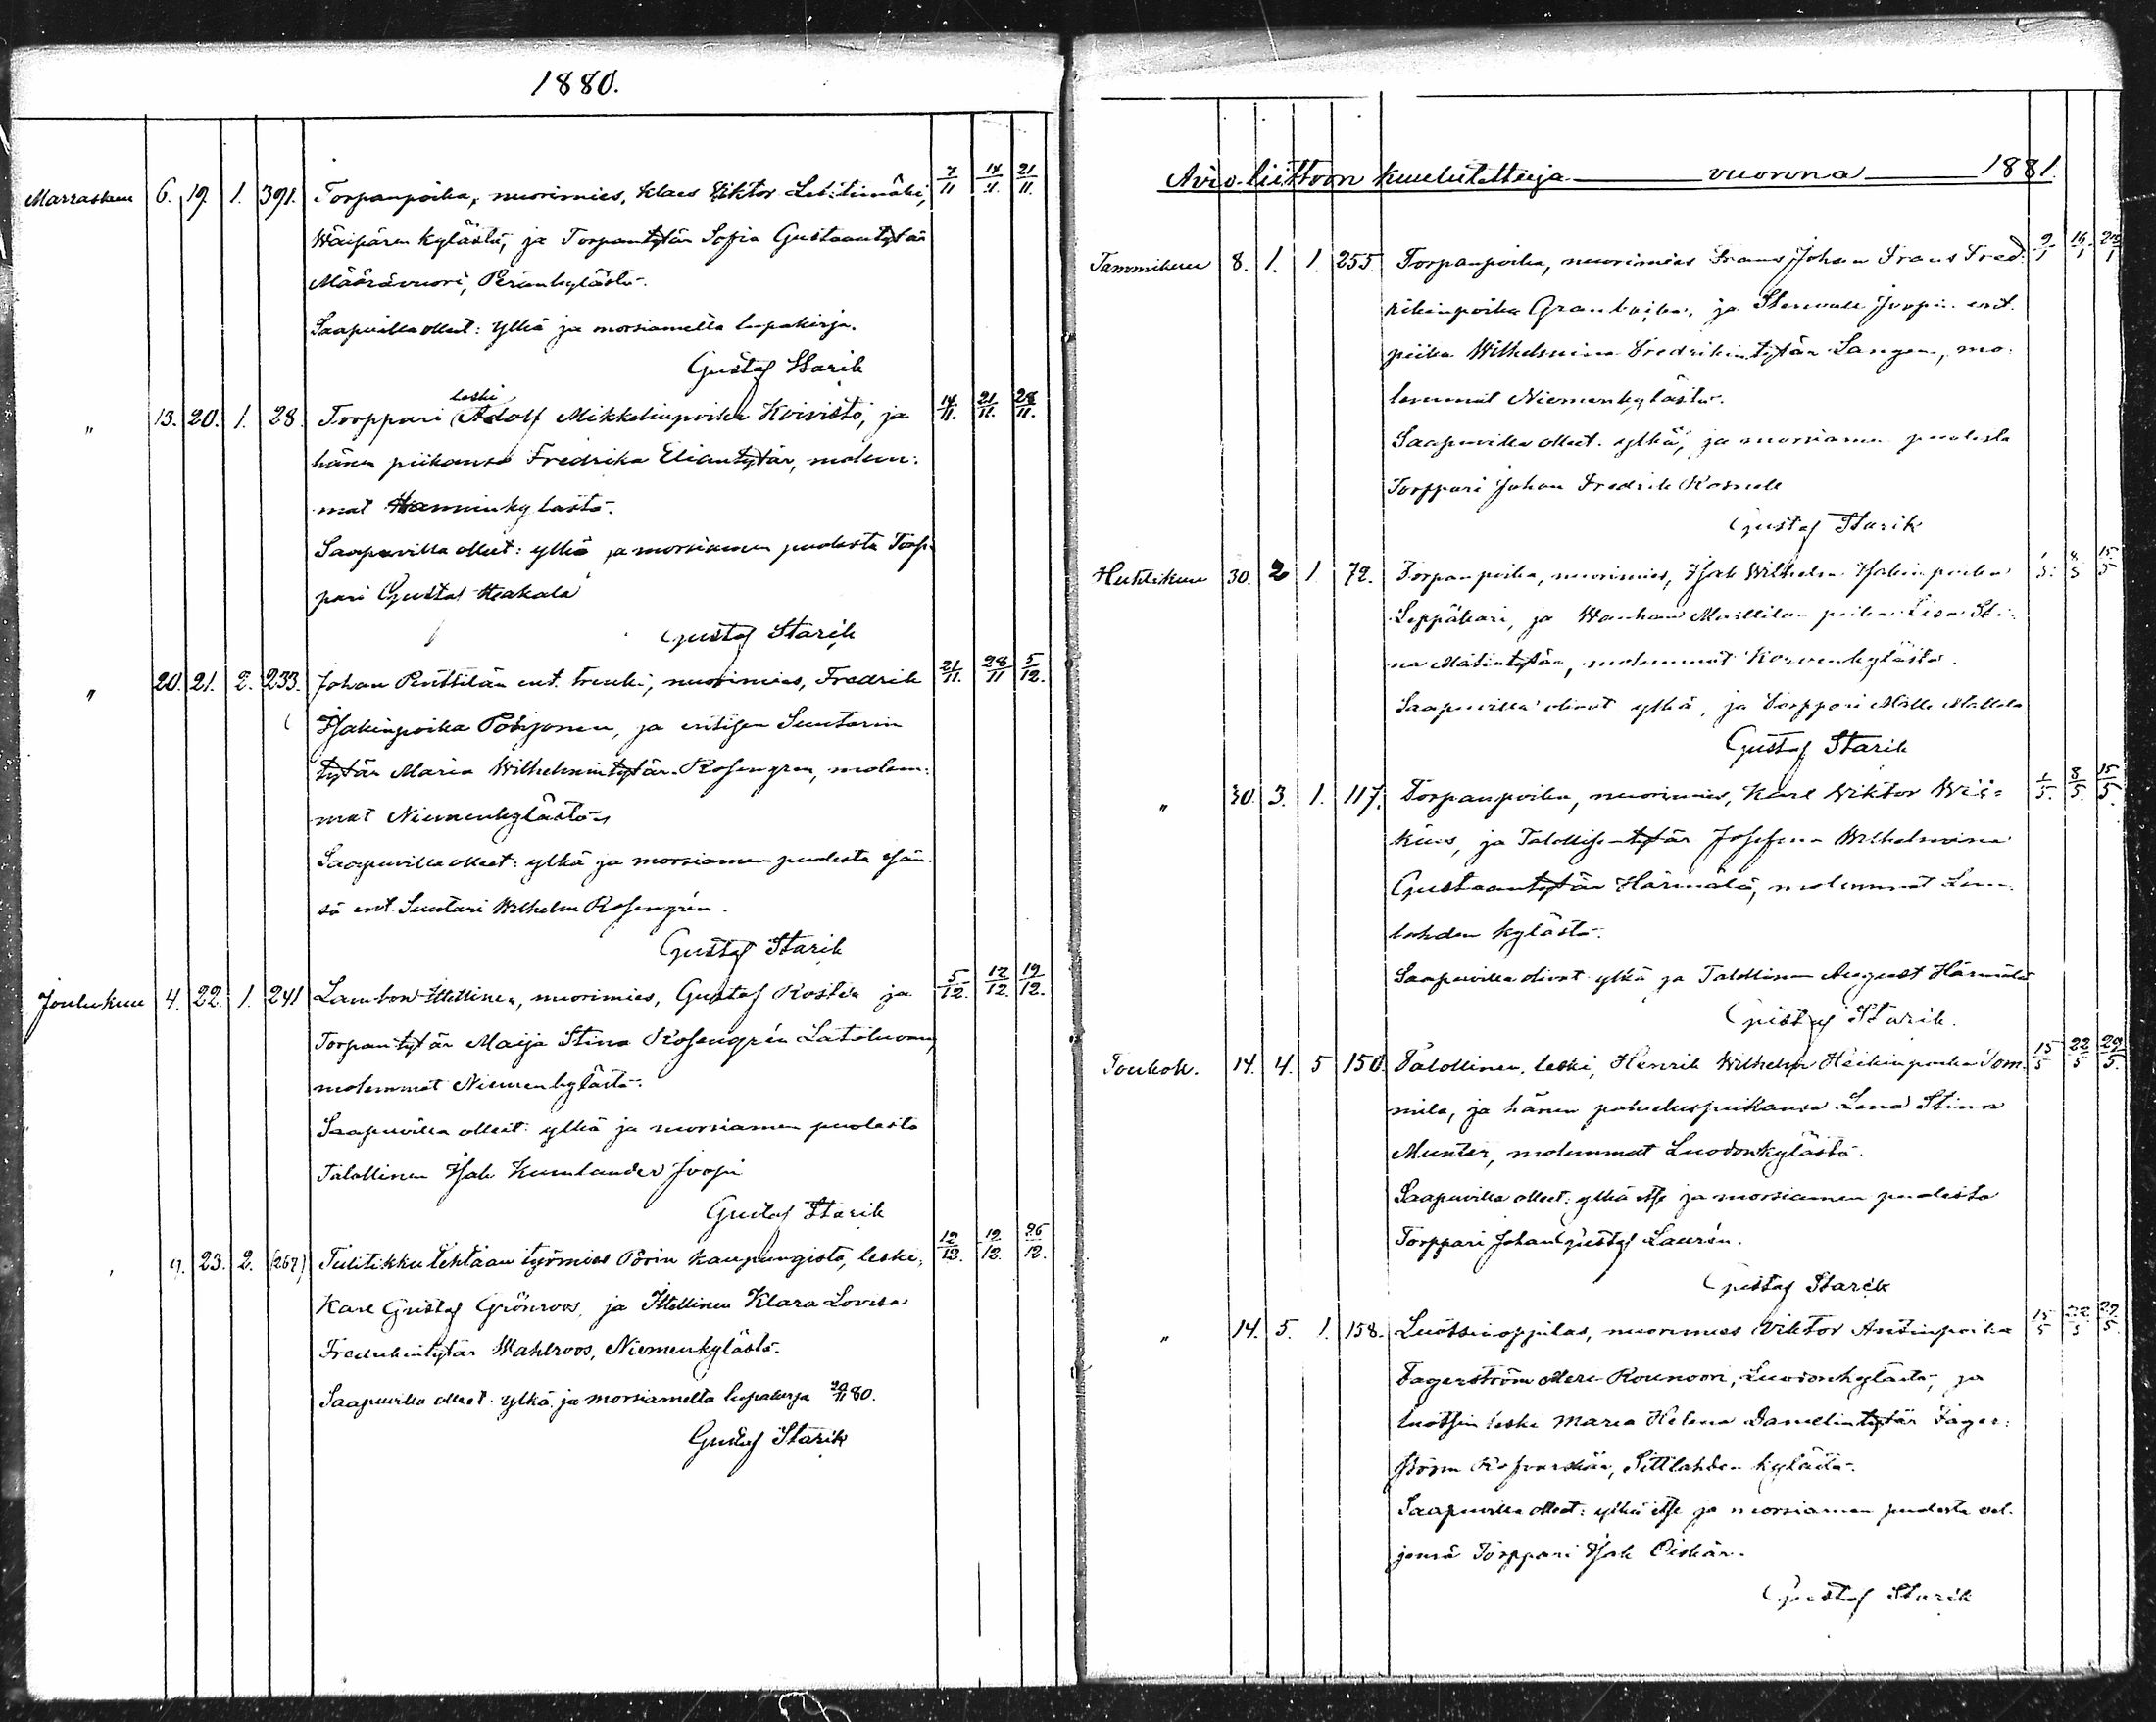 1880.
Marraskuu 6. 19. 1. 391. Torpanpoika, nuorimies, Klaes Wiktor Lehtimäki, 7/11 14/11. 21/11.
Wäipären kylästä, ja Torpantytär Sofia Gustaantytär
Määrävuori, Peränkylästä.
Saapuvilla olleet: ylkä ja morsiamelta lupakirja.
Gustaf Starik
leski
" 13. 20. 1. 28. Torppari Adolf Mikkelinpoika Koivisto, ja 14/11. 21/11. 28/11.
hänen piikansa Fredrika Eliantytär, molem:
mat Hamninkylästä.
Saapuvilla olleet: ylkä ja morsiamen puolesta Torp-
pari Gustaf Haakala
Gustaf Starik
" 20. 21. 2. 233. Johan Penttilän ent. trenki, nuorimies, Fredrik 21/11. 28/11 5/12.
Isakinpoika Pohjonen, ja entisen Suutarin
tytär Maria Wilhelmintytär Rosengren, molem:
mat Niemenkylästä
Saapuvilla olleet: ylkä ja morsiamen puolesta isän
sä ent. Suutari Wilhelm Rosengrén.
Gustaf Starik
Joulukuu 4. 22. 1. 241 Itellinen, nuorimies, Gustaf ja 5/12. 12/12. 19/12.
Torpantytär Maija Stina Rosengrén Latoluoma,
molemmat Niemenkylästä.
Saapuvilla olleet: ylkä ja morsiamen puolesta
Talollinen Isak Kumlander Joopi
Gustaf Starik
23. 2. (267) Tulitikku tehtaan työmies Porin kaupungista, leski, 12/12. 19/12. 26/12.
Karl Gustaf Grönroos, ja Itellinen Klara Lovisa
Fredrikintytär Wahlroos, Niemenkylästä.
Saapuvilla olleet: ylkä ja morsiamelta lupakirja 80.
Gustaf Starik
Avio-liittoon kuulutettuja vuonna 1881.
Tammikuu 8. 1. 1. 255. Torpanpoika, nuorimies Frans Johan Frans Fred- 9/1 16/1
rikinpoika ja Joopin ent.
piika Wilhelmina Fredrikintytär Langen, mo-
lemmat Niemenkylästä.
Saapuvilla olleet: ylkä, ja morsiamen puolesta
Torppari Johan Fredrik
Gustaf Starik
Huhtikuu 30. 2 1. 72. Torpanpoika, nuorimies, Isak Wilhelm Isakinpoika 1/5. 8/5 15/5
Leppäkari, ja Wanhan Marttilan piika Lisa Sti-
na Matintytär, molemmat Korvenkylästä.
Saapuvilla olivat ylkä, ja Torppari
Gustaf Starik
" 30. 3. 1. 117. Torpanpoika, nuorimies, Karl Wiktor 1/5. 8/5. 15/5.
ja Talollisentytär Josefina Wilhelmina
Gustaantytär Härmälä, molemmat
lahden kylästä.
Saapuvilla olivat ylkä ja Talollinen August Härmälä
Gustaf Starik.
Toukok. 14. 4. 5 150. Talollinen, leski, Henrik Wilhelm Heikinpoika Tom- 15/5 22/5 29/5.
mila, ja hänen palveluspiikansa Lena Stina
Munter, molemmat Luodonkylästä.
Saapuvilla olleet: ylkä itse ja morsiamen puolesta
Torppari Johan Gustaf Laurén.
Gustaf Starik
" 14. 5. 1. 158. Luotsinoppilas, nuorimies Viktor Antinpoika 15/5 22/5 29/5.
Fagerström Luodonkylästä, ja
luotsin leski Maria Helena Danielintytär Fager:
ström Sittlahden kylästä.
Saapuvilla olleet: ylkä itse ja morsiamen puolesta vel-
jensä Torppari Isak
Gustaf Starik